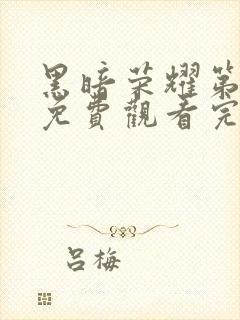 黑暗荣耀第
免費觀看完
吕梅